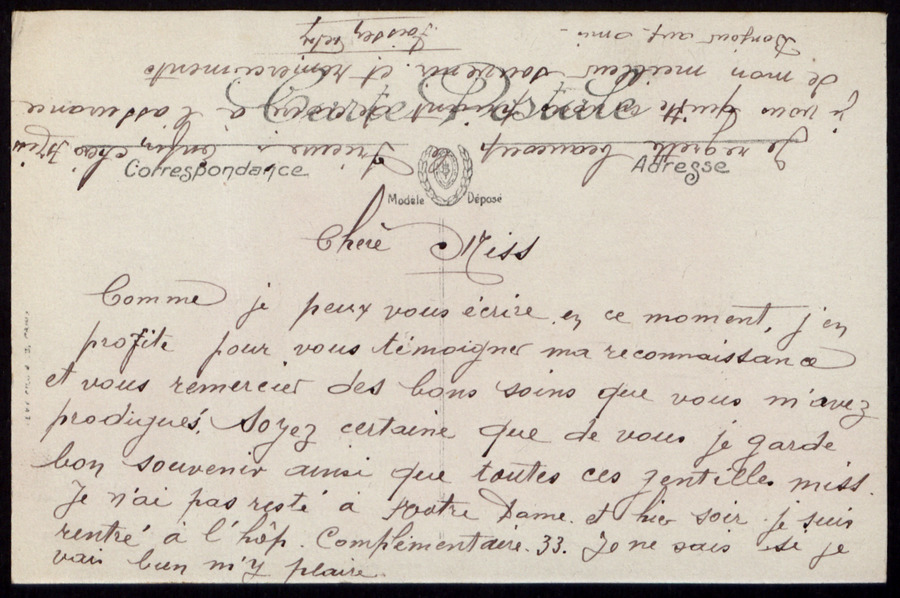 Carte Postale
Correspondance
Adresse
Modèle Déposé
Chère Miss
Comme je peux vous écrire en ce moment, j'en
profite pour vous témoigner ma reconnaissance
et vous remercier des bons soins que vous m'avez
prodigués. Soyez certaine que de vous je garde
bon souvenir ainsi que toutes ces gentilles miss.
Je n'ai pas resté à Notre Dame et hier soir je suis
rentré à l'hôp. Complémentaire. 33. Je ne sais si je
vais bien m'y plaire.
Je regrette beaucoup enfin chère
je vous quitte en à l'assurance
de mon meilleur souvenir et remerciements
Bonjour aux amis.